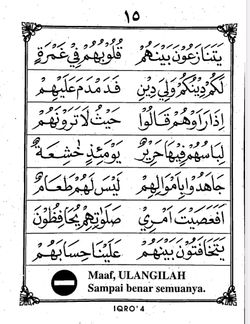 ١٥
يَتَنَازَعُوْنَ بَيْنَهُمْ قُلُوْبُهُمْ فِيْ غَمْرَةٍ
لَكُمْ دِيْنُكُمْ وَلِيَ دِيْنِ فَدَمْدَمَ عَلَيْهِمْ
اِذَا رَاَوْهُمْ قَالُوْا حَيْثُ لَا تَرَوْنَهُمْ
لِبَاسُهُمْ فِيْهَا حَرِيْرٌ يَوْمَئِذٍ خَشِعَةٌ
جَاهَدُوْا بِاَمْوَالِهِمْ لَيْسَ لَهُمْ طَعَامٌ
اَفَعَصَيْتَ اَمْرِيْ صَلَوَاتِهِمْ يُحَافِظُوْنَ
يَتَخَافَتُوْنَ بَيْنَهُمْ عَلَيْنَا حِسَابَهُمْ
Maaf, ULANGILAH
Sampai benar semuanya.
IQRO' 4